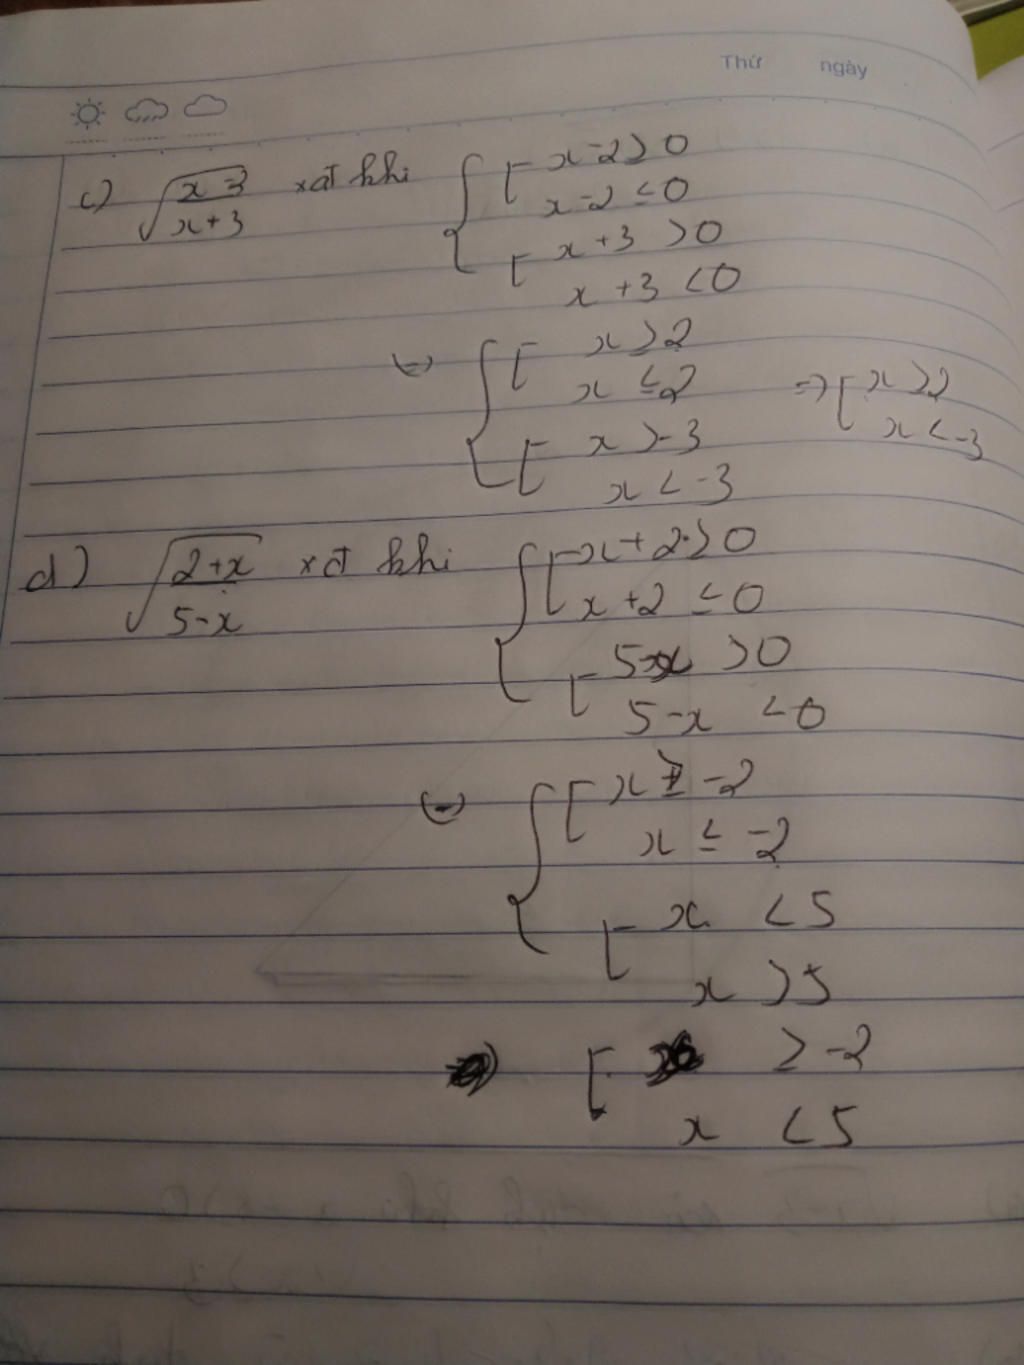 Thứ ngày
c) √(x-3 / x+3) xđ khi { [ x-2 ≥ 0
x-2 ≤ 0
[ x+3 > 0
x+3 < 0
<=> { [ x ≥ 2
x ≤ 2 => [ x ≥ 2
[ x > -3 x < -3
x < -3
d) √(2+x / 5-x) xđ khi { [ x+2 ≥ 0
x+2 ≤ 0
[ 5-x > 0
5-x < 0
<=> { [ x ≥ -2
x ≤ -2
[ x < 5
x > 5
[ x ≥ -2
x < 5